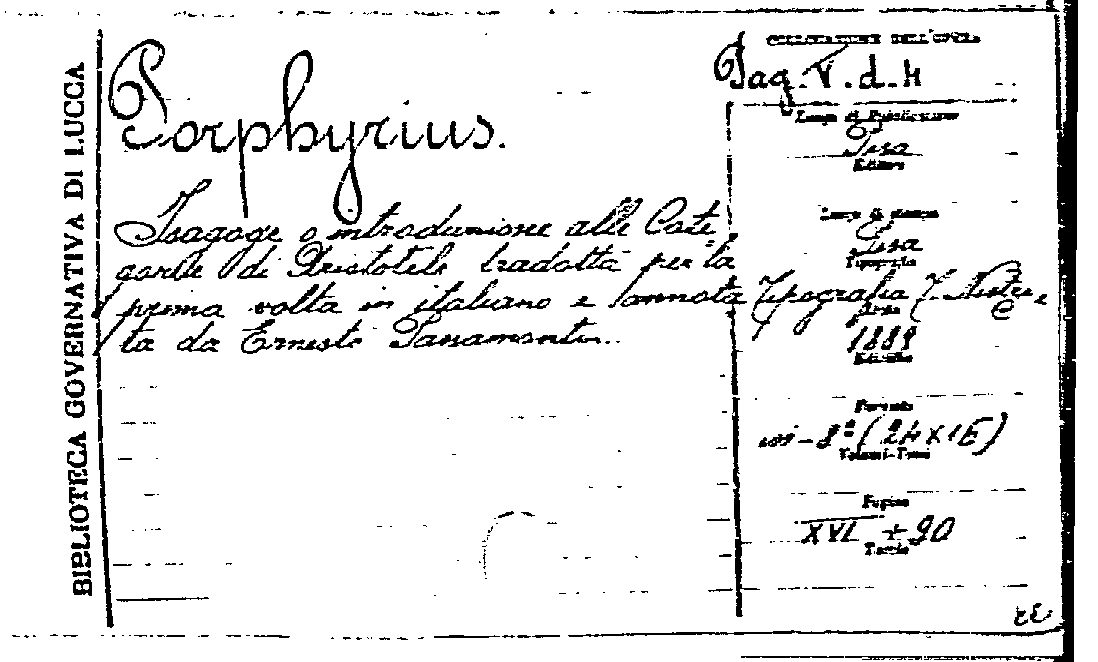 BIBLIOTECA GOVERNATIVA DI LUCCA
Porphyrius.
Isagoge o introduzione alle Cate
gorie di Aristotele tradotta per la
prima volta in italiano e annota
ta da Ernesto
COLLOCAZIONE DELL'OPERA
Pag. V. d. 4
Luogo di Pubblicazione
Pisa
Editore
Luogo di stampa
Pisa
Tipografia
Tipografia T. Nistri e
Anno
1889
Edizione
Formato
in-8º (24X16)
Volumi-Tomi
Pagine
XVI + 90
Tavole